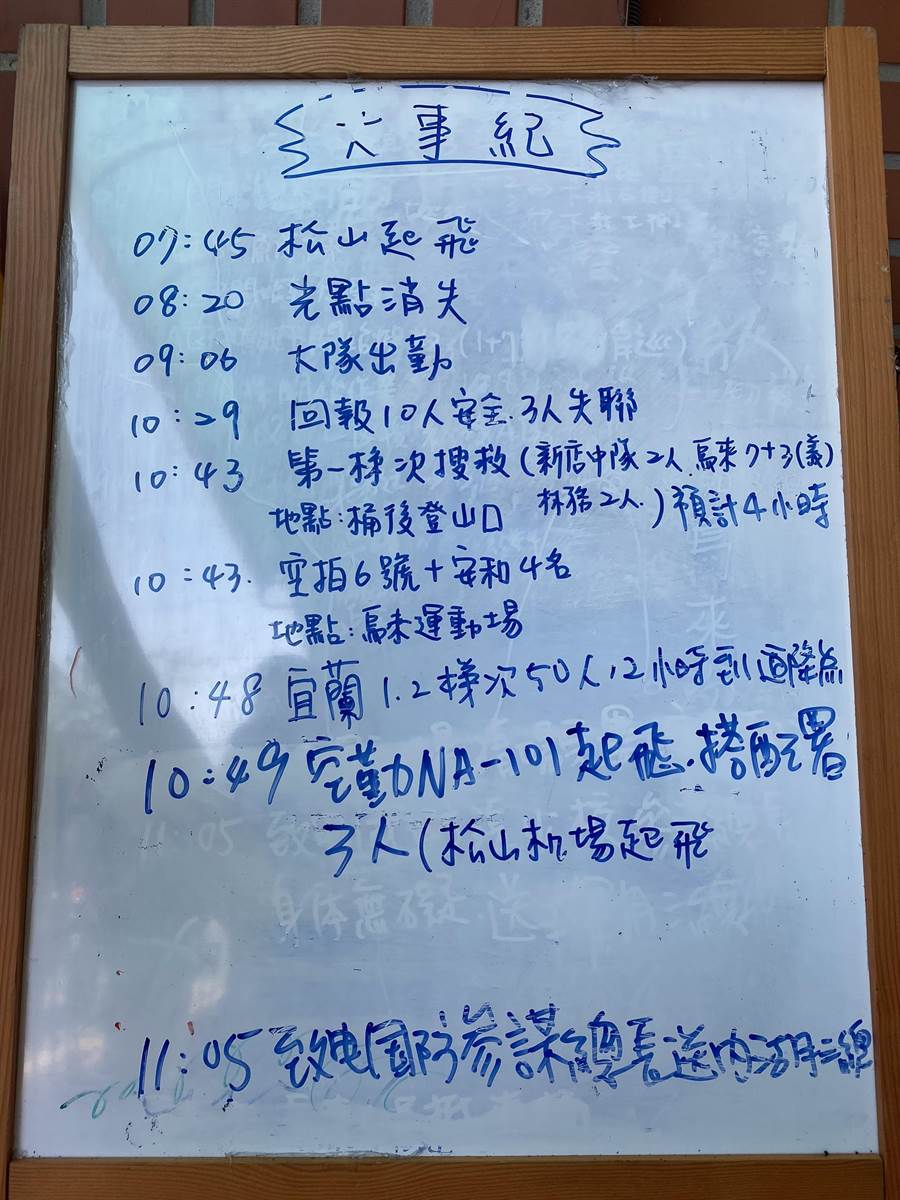 大事紀
07:45 松山起飛
08:20 光點消失
09:06 大隊出勤
10:29 回報10人安全.3人失聯
10:43 第一梯次搜救(新店中隊2人.烏來7+3(義)
林務2人.)預計4小時
地點:桶後登山口
10:43. 空拍6號+安和4名
地點:烏來運動場
10:48 宜蘭1.2梯次50人,2小時到迫降點
10:49 空勤NA-101起飛.搭配署
3人(松山机場起飛
11:05 致电国防參謀總長送內湖三總